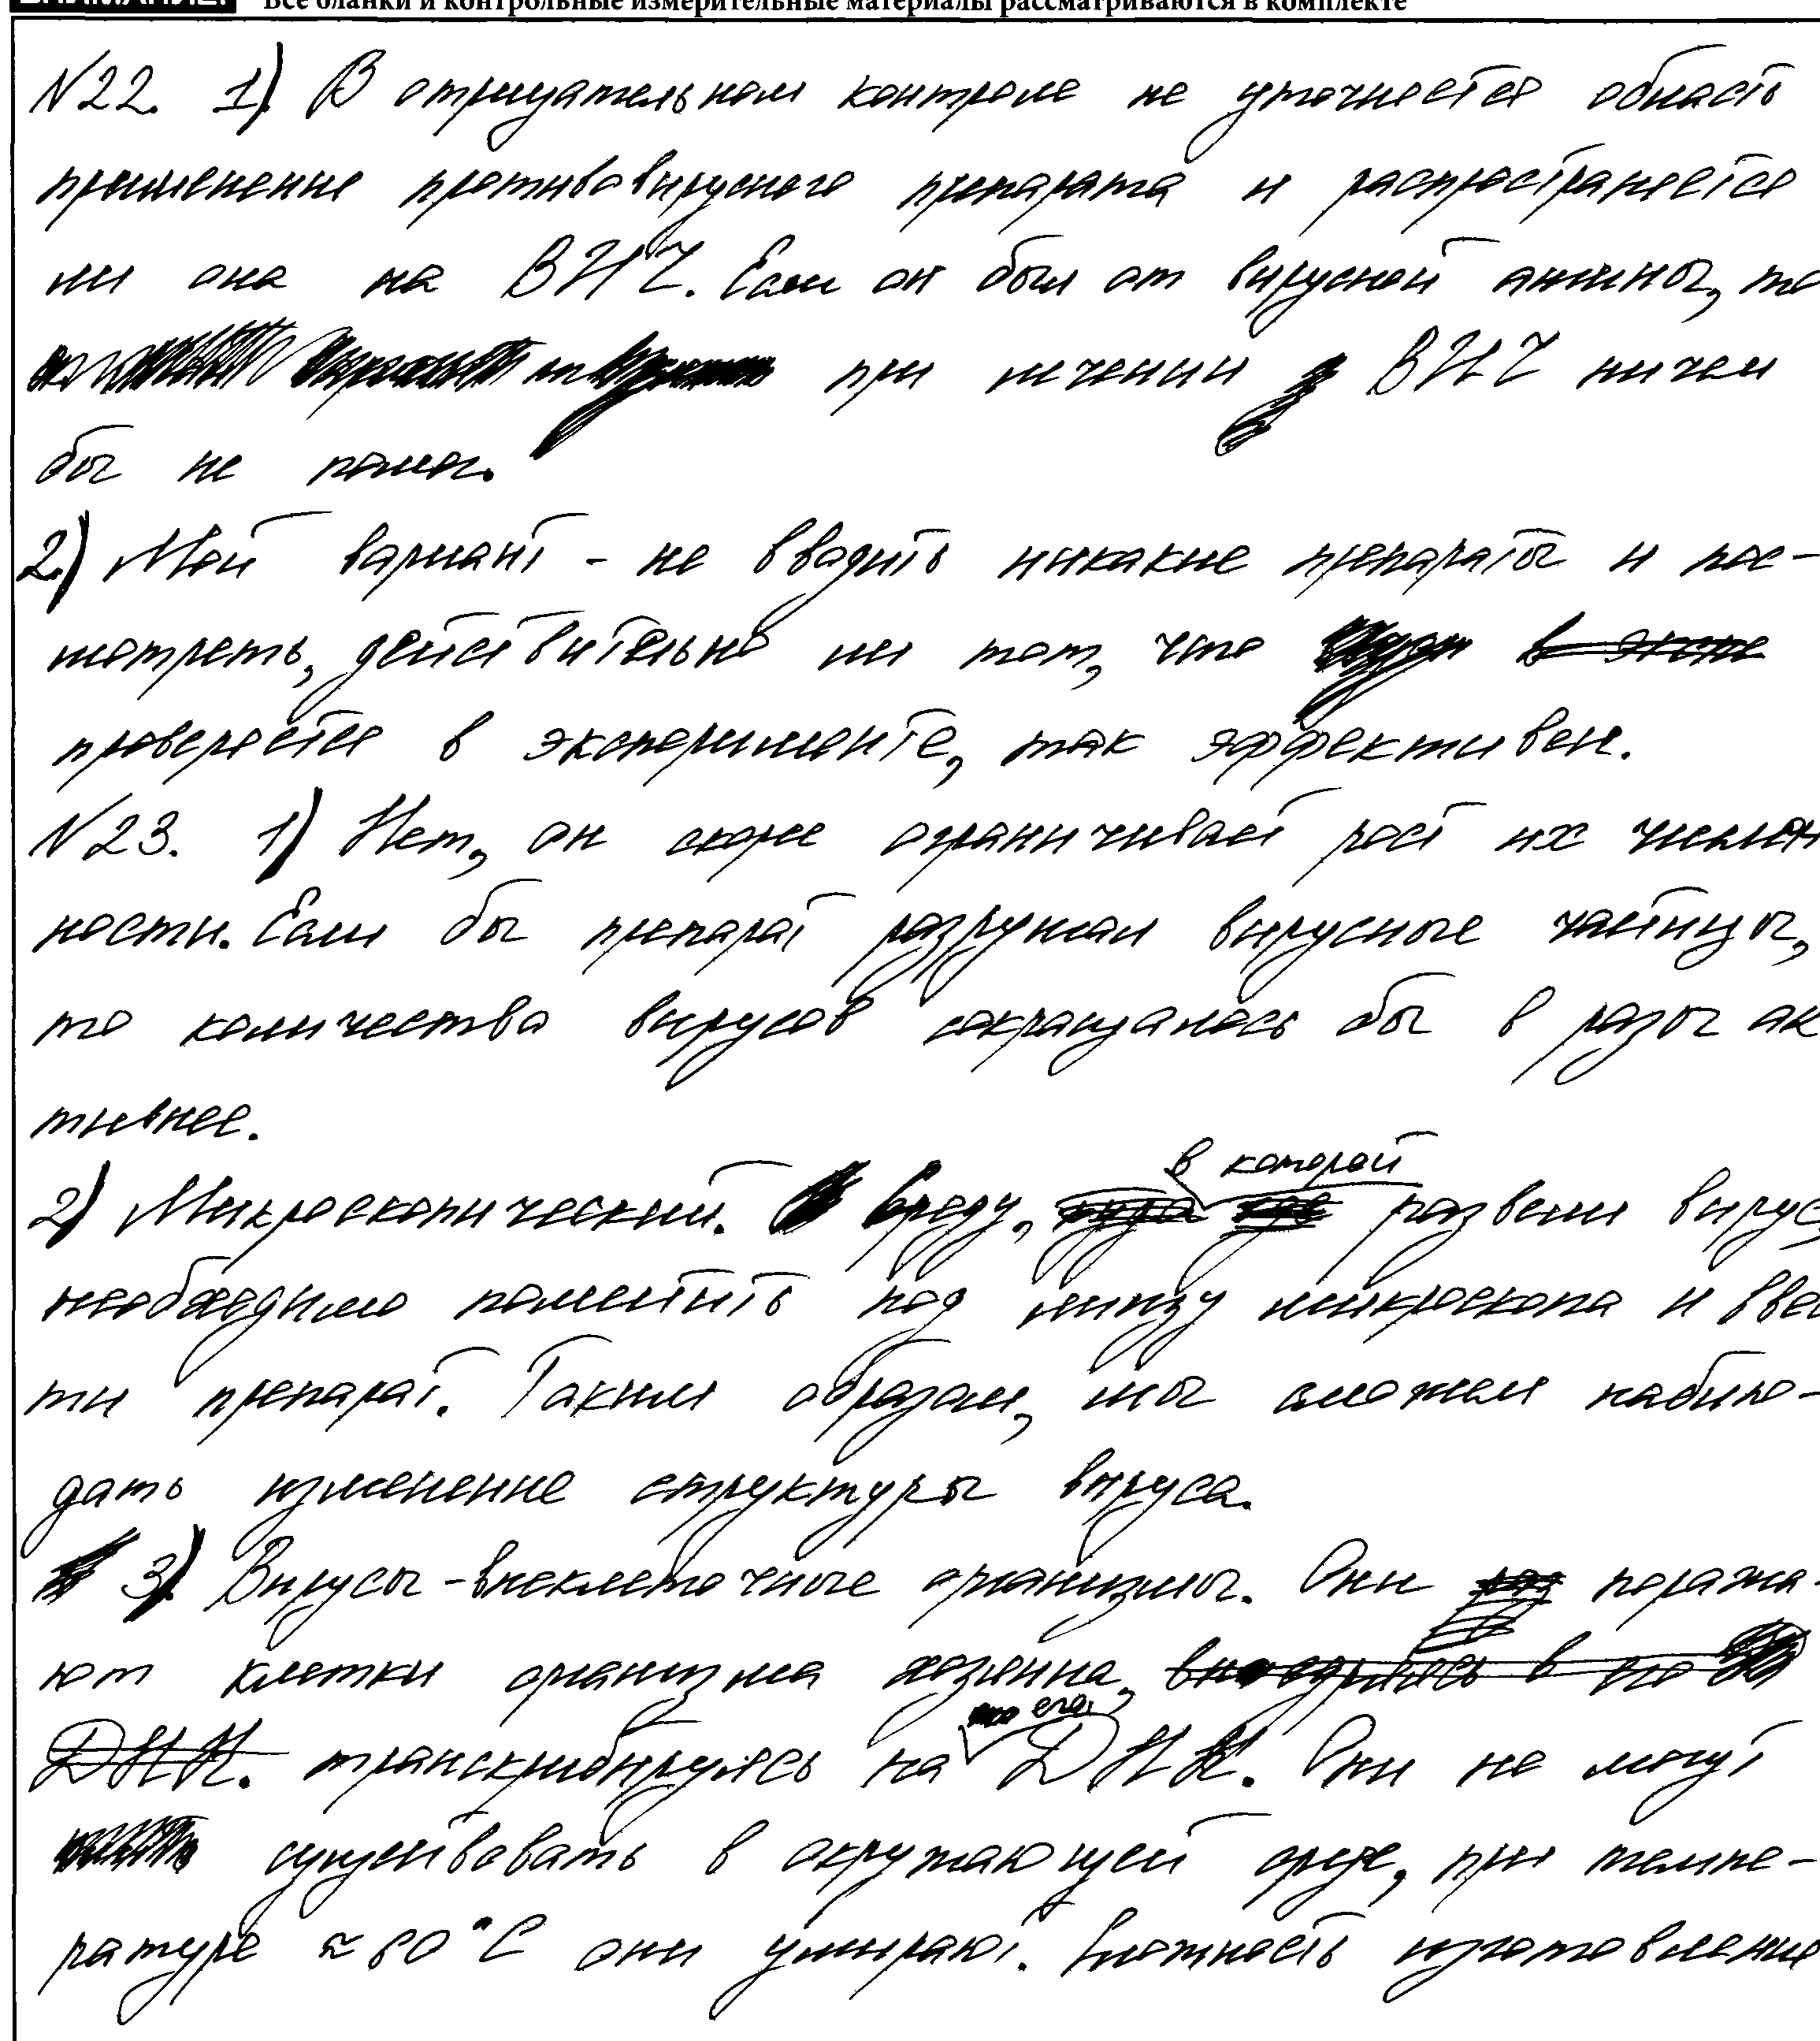 Все бланки и контрольные измерительные материалы рассматриваются в комплекте
№22. 1) В отрицательном контроле не уточняется область
применение противовирусного препарата и распространяется
ли она на ВИЧ. Если он был от вирусной ангины, то
при лечении ВИЧ ничем
бы не помог.
2) Мой вариант - не вводить никакие препараты и пос-
мотреть, действительно ли тот, что
проверяется в эксперименте, так эффективен.
№23. 1) Нет, он скорее ограничивает рост их числен
ности. Если бы препарат разрушал вирусные частицы,
то количество вирусов сокращалось бы в разы ак
тивнее.
2) Микроскопический. Среду, в которой развели вирус,
необходимо поместить под линзу микроскопа и ввес
ти препарат. Таким образом, мы сможем наблю-
дать изменение структуры вируса.
3) Вирусы - внеклеточные организмы. Они поража-
ют клетки организма хозяина,
транскрибируясь на его ДНК. Они не могут
существовать в окружающей среде, при темпе-
ратуре ≈ 60°C они умирают. Сложность изготовления